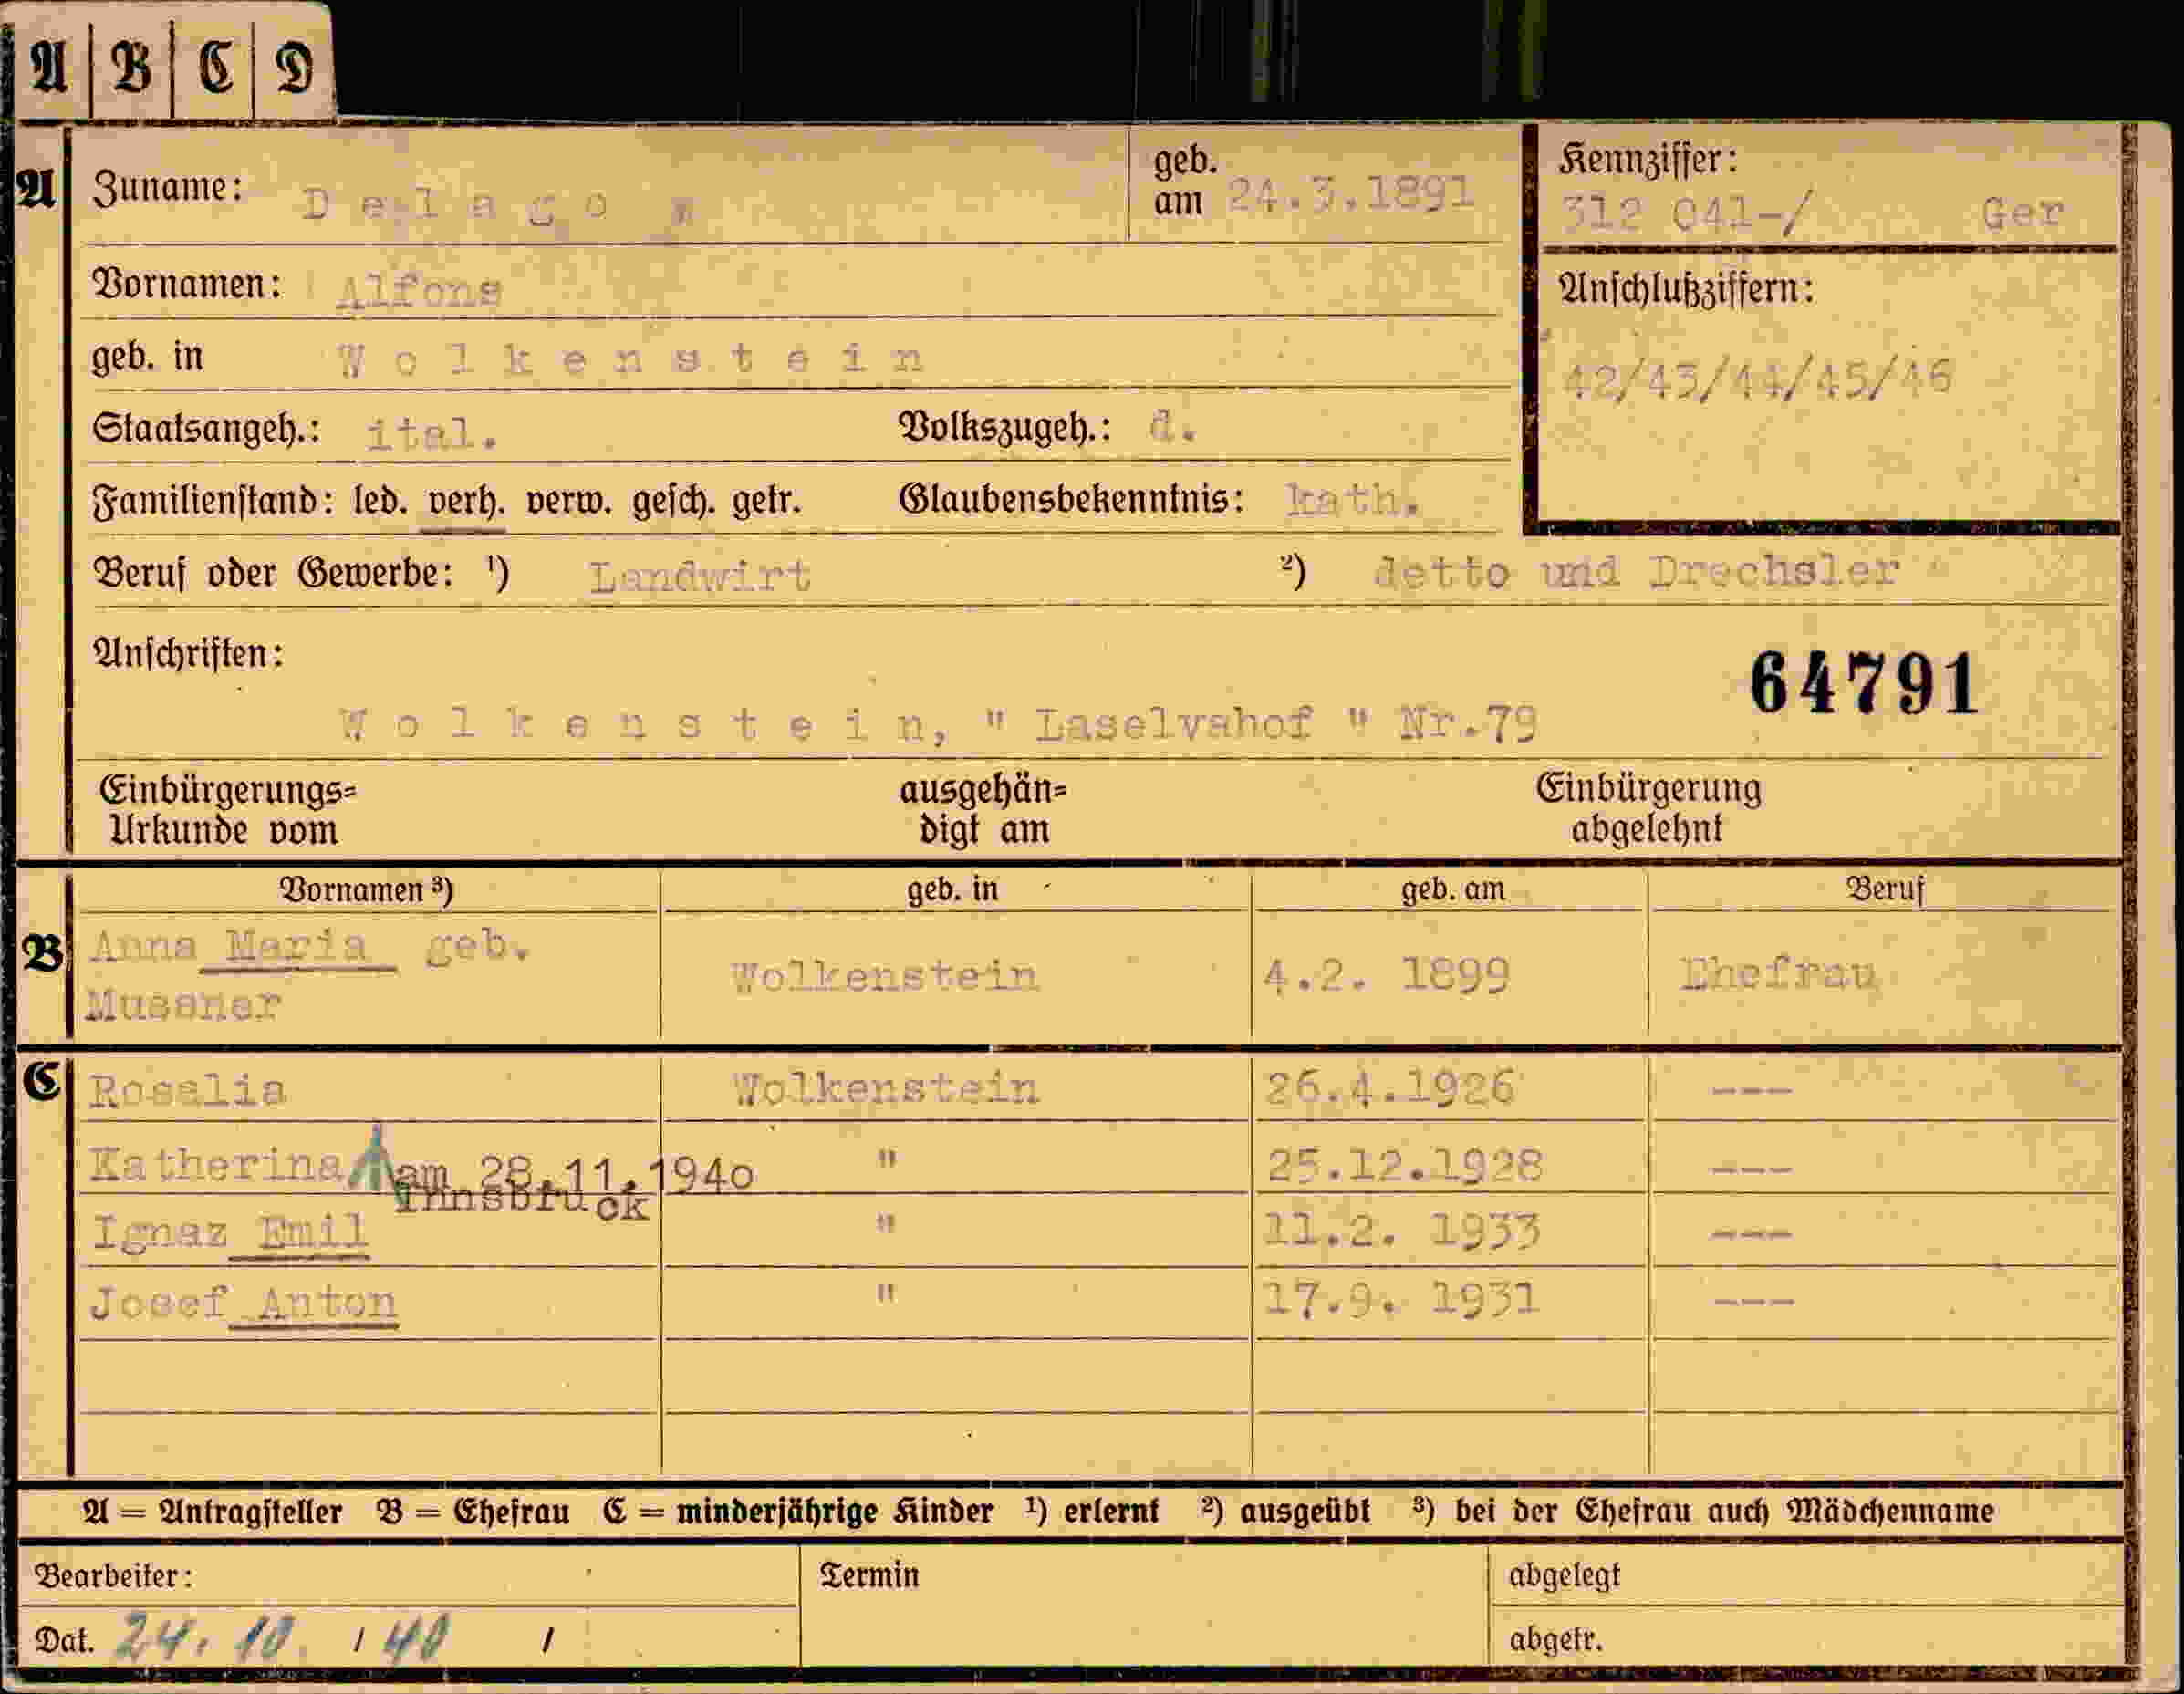 A B C D
A Zuname: D e l a g o geb. am 24.3.1891 Kennziffer:
312 041-/ Ger
Vornamen: Alfons Anschlußziffern:
geb. in W o l k e n s t e i n 42/43/44/45/46
Staatsangeh.: ital. Volkszugeh.: d.
Familienstand: led. verh. verw. gesch. getr. Glaubensbekenntnis: kath.
Beruf oder Gewerbe: ¹) Landwirt ²) detto und Drechsler
Anschriften: 64791
W o l k e n s t e i n, " Laselvahof " Nr.79
Einbürgerungs= ausgehän= Einbürgerung
Urkunde vom digt am abgelehnt
Vornamen ³) geb. in geb. am Beruf
B Anna Maria geb.
Mussner Wolkenstein 4.2. 1899 Ehefrau
C Rosalia Wolkenstein 26.4.1926 ---
Katherina am 28.11.1940 " 25.12.1928 ---
Innsbruck
Ignaz Emil " 11.2. 1933 ---
Josef Anton " 17.9. 1931 ---
A = Antragsteller B = Ehefrau C = minderjährige Kinder ¹) erlernt ²) ausgeübt ³) bei der Ehefrau auch Mädchenname
Bearbeiter: Termin abgelegt
Dat. 24. 10. / 40 / abgetr.